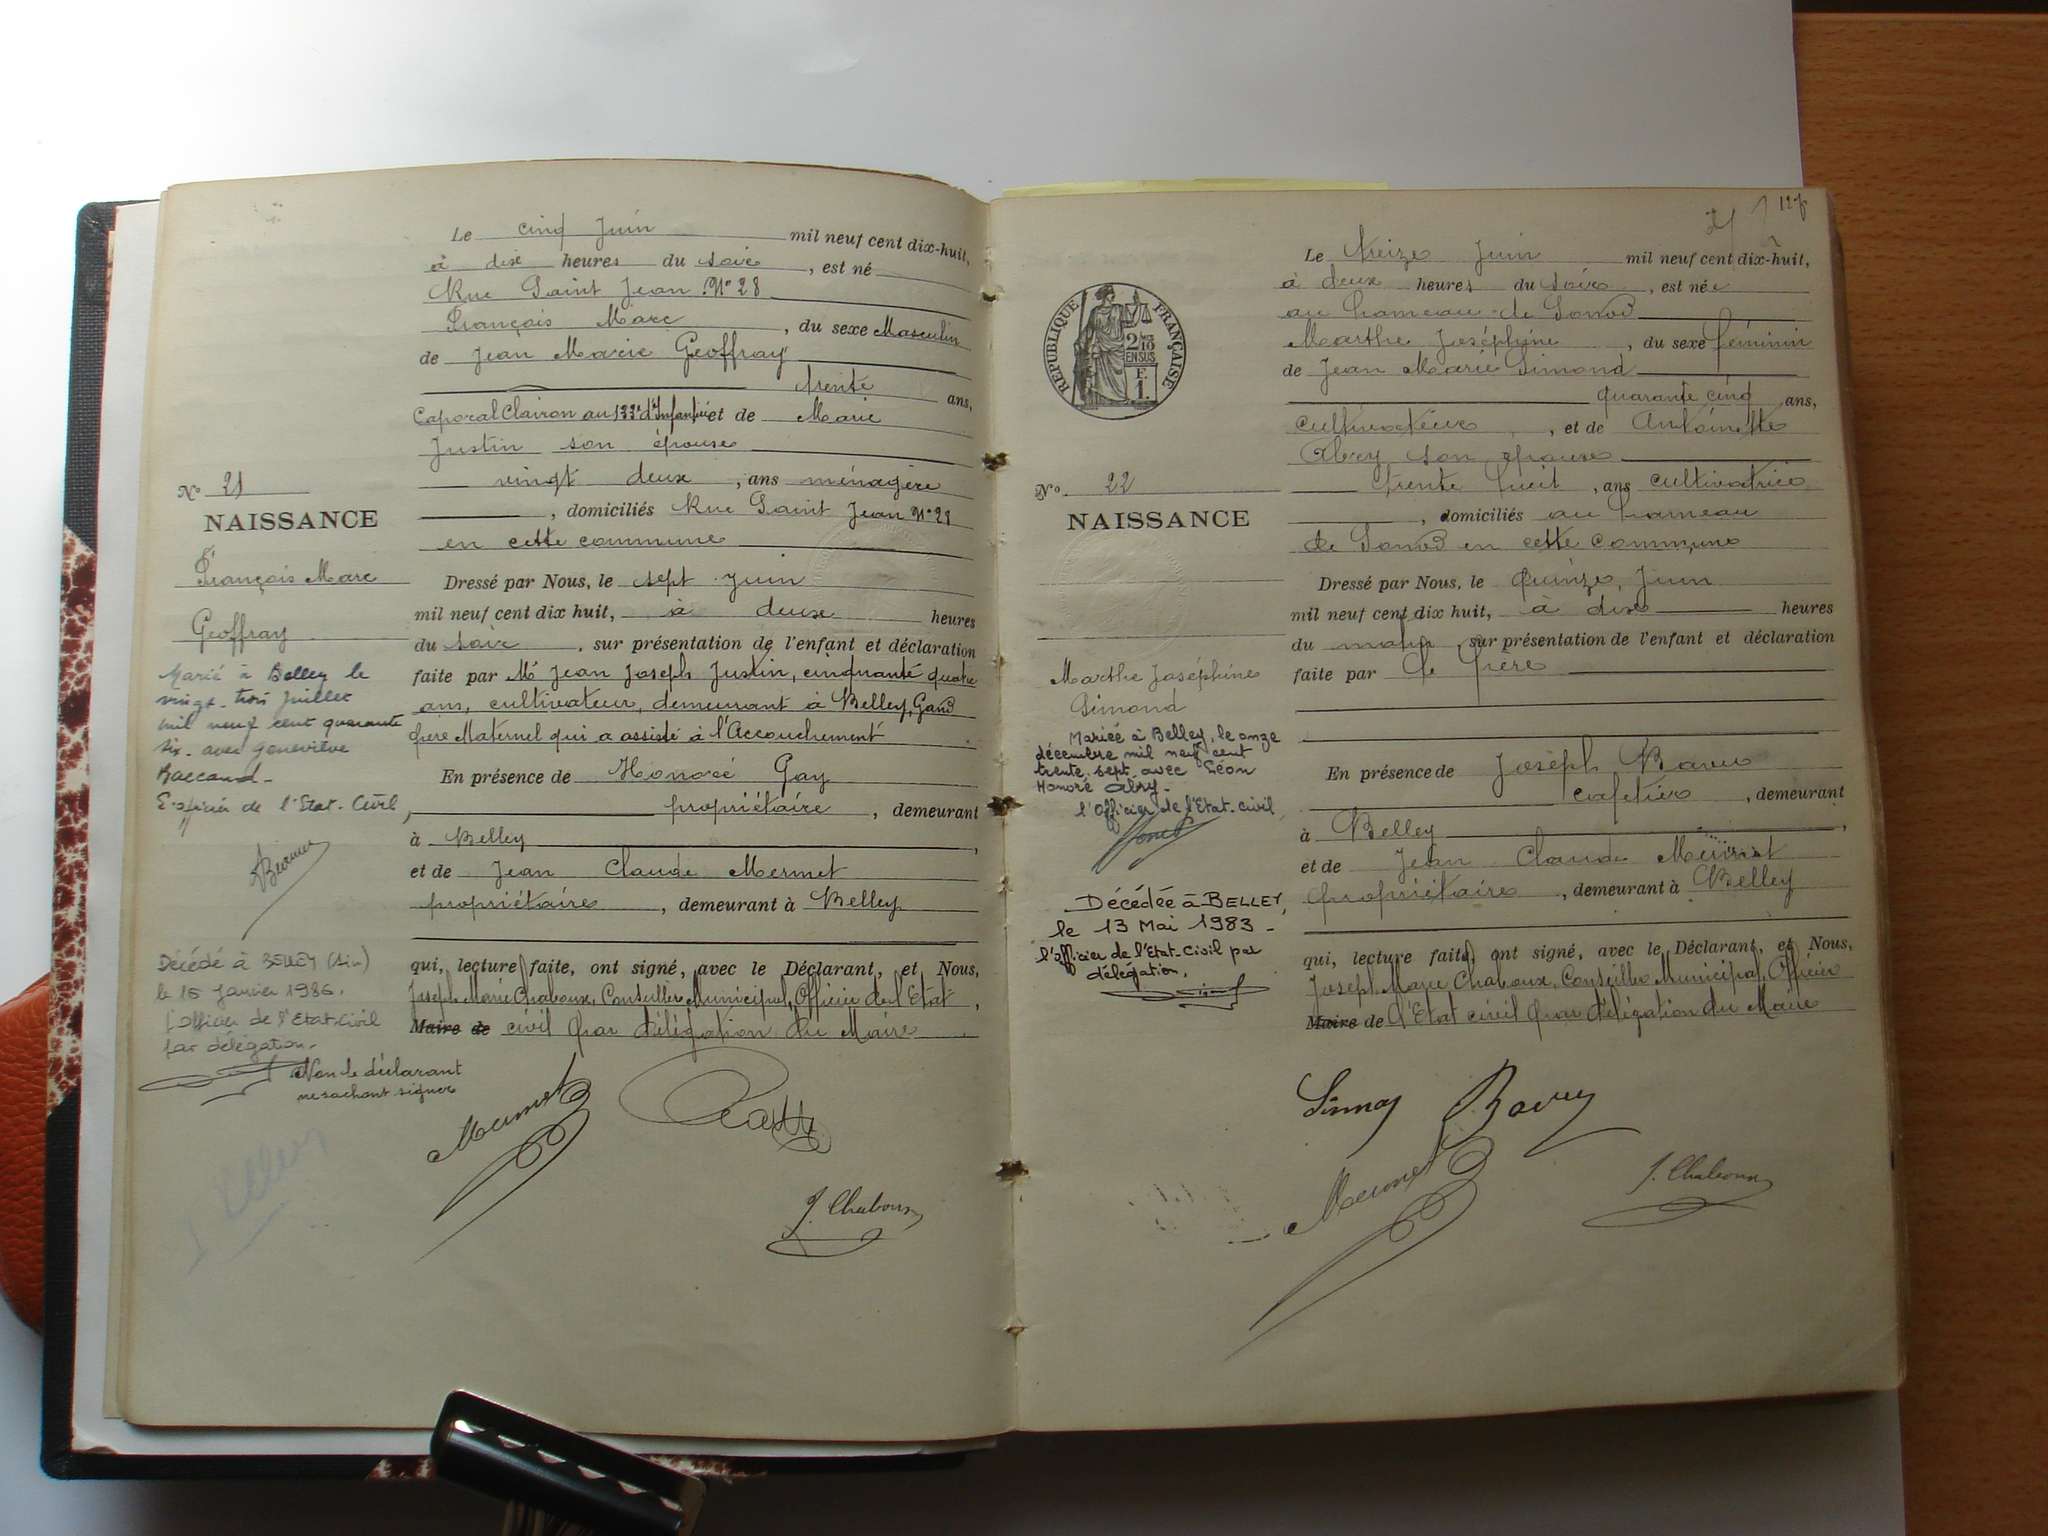 Le cinq Juin mil neuf cent dix-huit,
à dix heures du soir, est né
Rue Saint Jean N° 28
François Marc, du sexe Masculin
de Jean Marie Geoffray
trente ans,
Caporal Clairon au 133e d'Infanterie et de Marie
Justin son épouse
vingt deux, ans ménagère
, domiciliés Rue Saint Jean N° 28
en cette commune
Dressé par Nous, le sept Juin
mil neuf cent dix huit, à deux heures
du soir, sur présentation de l'enfant et déclaration
faite par Mr Jean Joseph Justin, cinquante quatre
ans, cultivateur, demeurant à Belley, Grand
père Maternel qui a assisté à l'Accouchement
En présence de Honoré Gay
propriétaire, demeurant
à Belley,
et de Jean Claude Mermet
propriétaire, demeurant à Belley
qui, lecture faite, ont signé, avec le Déclarant, et Nous,
Joseph Marie Chaboux, Conseiller Municipal, Officier de l'Etat,
Maire de civil par délégation du Maire
N° 21
NAISSANCE
François Marc
Geoffray
Marié à Belley le
vingt-trois Juillet
mil neuf cent quarante
six avec Geneviève
Baccand-
L'officier de l'Etat-Civil,
Décédé à BELLEY (Ain)
le 15 Janvier 1986.
l'Officier de l'Etat-Civil
par délégation.
Non le déclarant
ne sachant signer
Mermet
J. Chaboux
127
REPUBLIQUE FRANÇAISE
2 MES
10
EN SUS
F.
1.
Le Treize Juin mil neuf cent dix-huit,
à deux heures du soir, est née
au hameau de
Marthe Joséphine, du sexe féminin
de Jean Marie Simond
quarante cinq ans,
cultivateur, et de Antoinette
Abry son épouse
trente huit, ans cultivatrice
, domiciliés au hameau
de en cette commune
Dressé par Nous, le Quinze Juin
mil neuf cent dix huit, à dix heures
du matin, sur présentation de l'enfant et déclaration
faite par le Père
En présence de Joseph
cafetier, demeurant
à Belley,
et de Jean Claude Mermet
propriétaire, demeurant à Belley
qui, lecture faite, ont signé, avec le Déclarant, et Nous,
Joseph Marie Chaboux, Conseiller Municipal, Officier
Maire de l'Etat civil par délégation du Maire
N° 22
NAISSANCE
Marthe Joséphine
Simond
Mariée à Belley, le onze
décembre mil neuf cent
trente sept avec Léon
Honoré Abry-
l'Officier de l'Etat-civil,
Décédée à BELLEY,
le 13 Mai 1983-
l'officier de l'Etat-Civil par
délégation,
Mermet
J. Chaboux